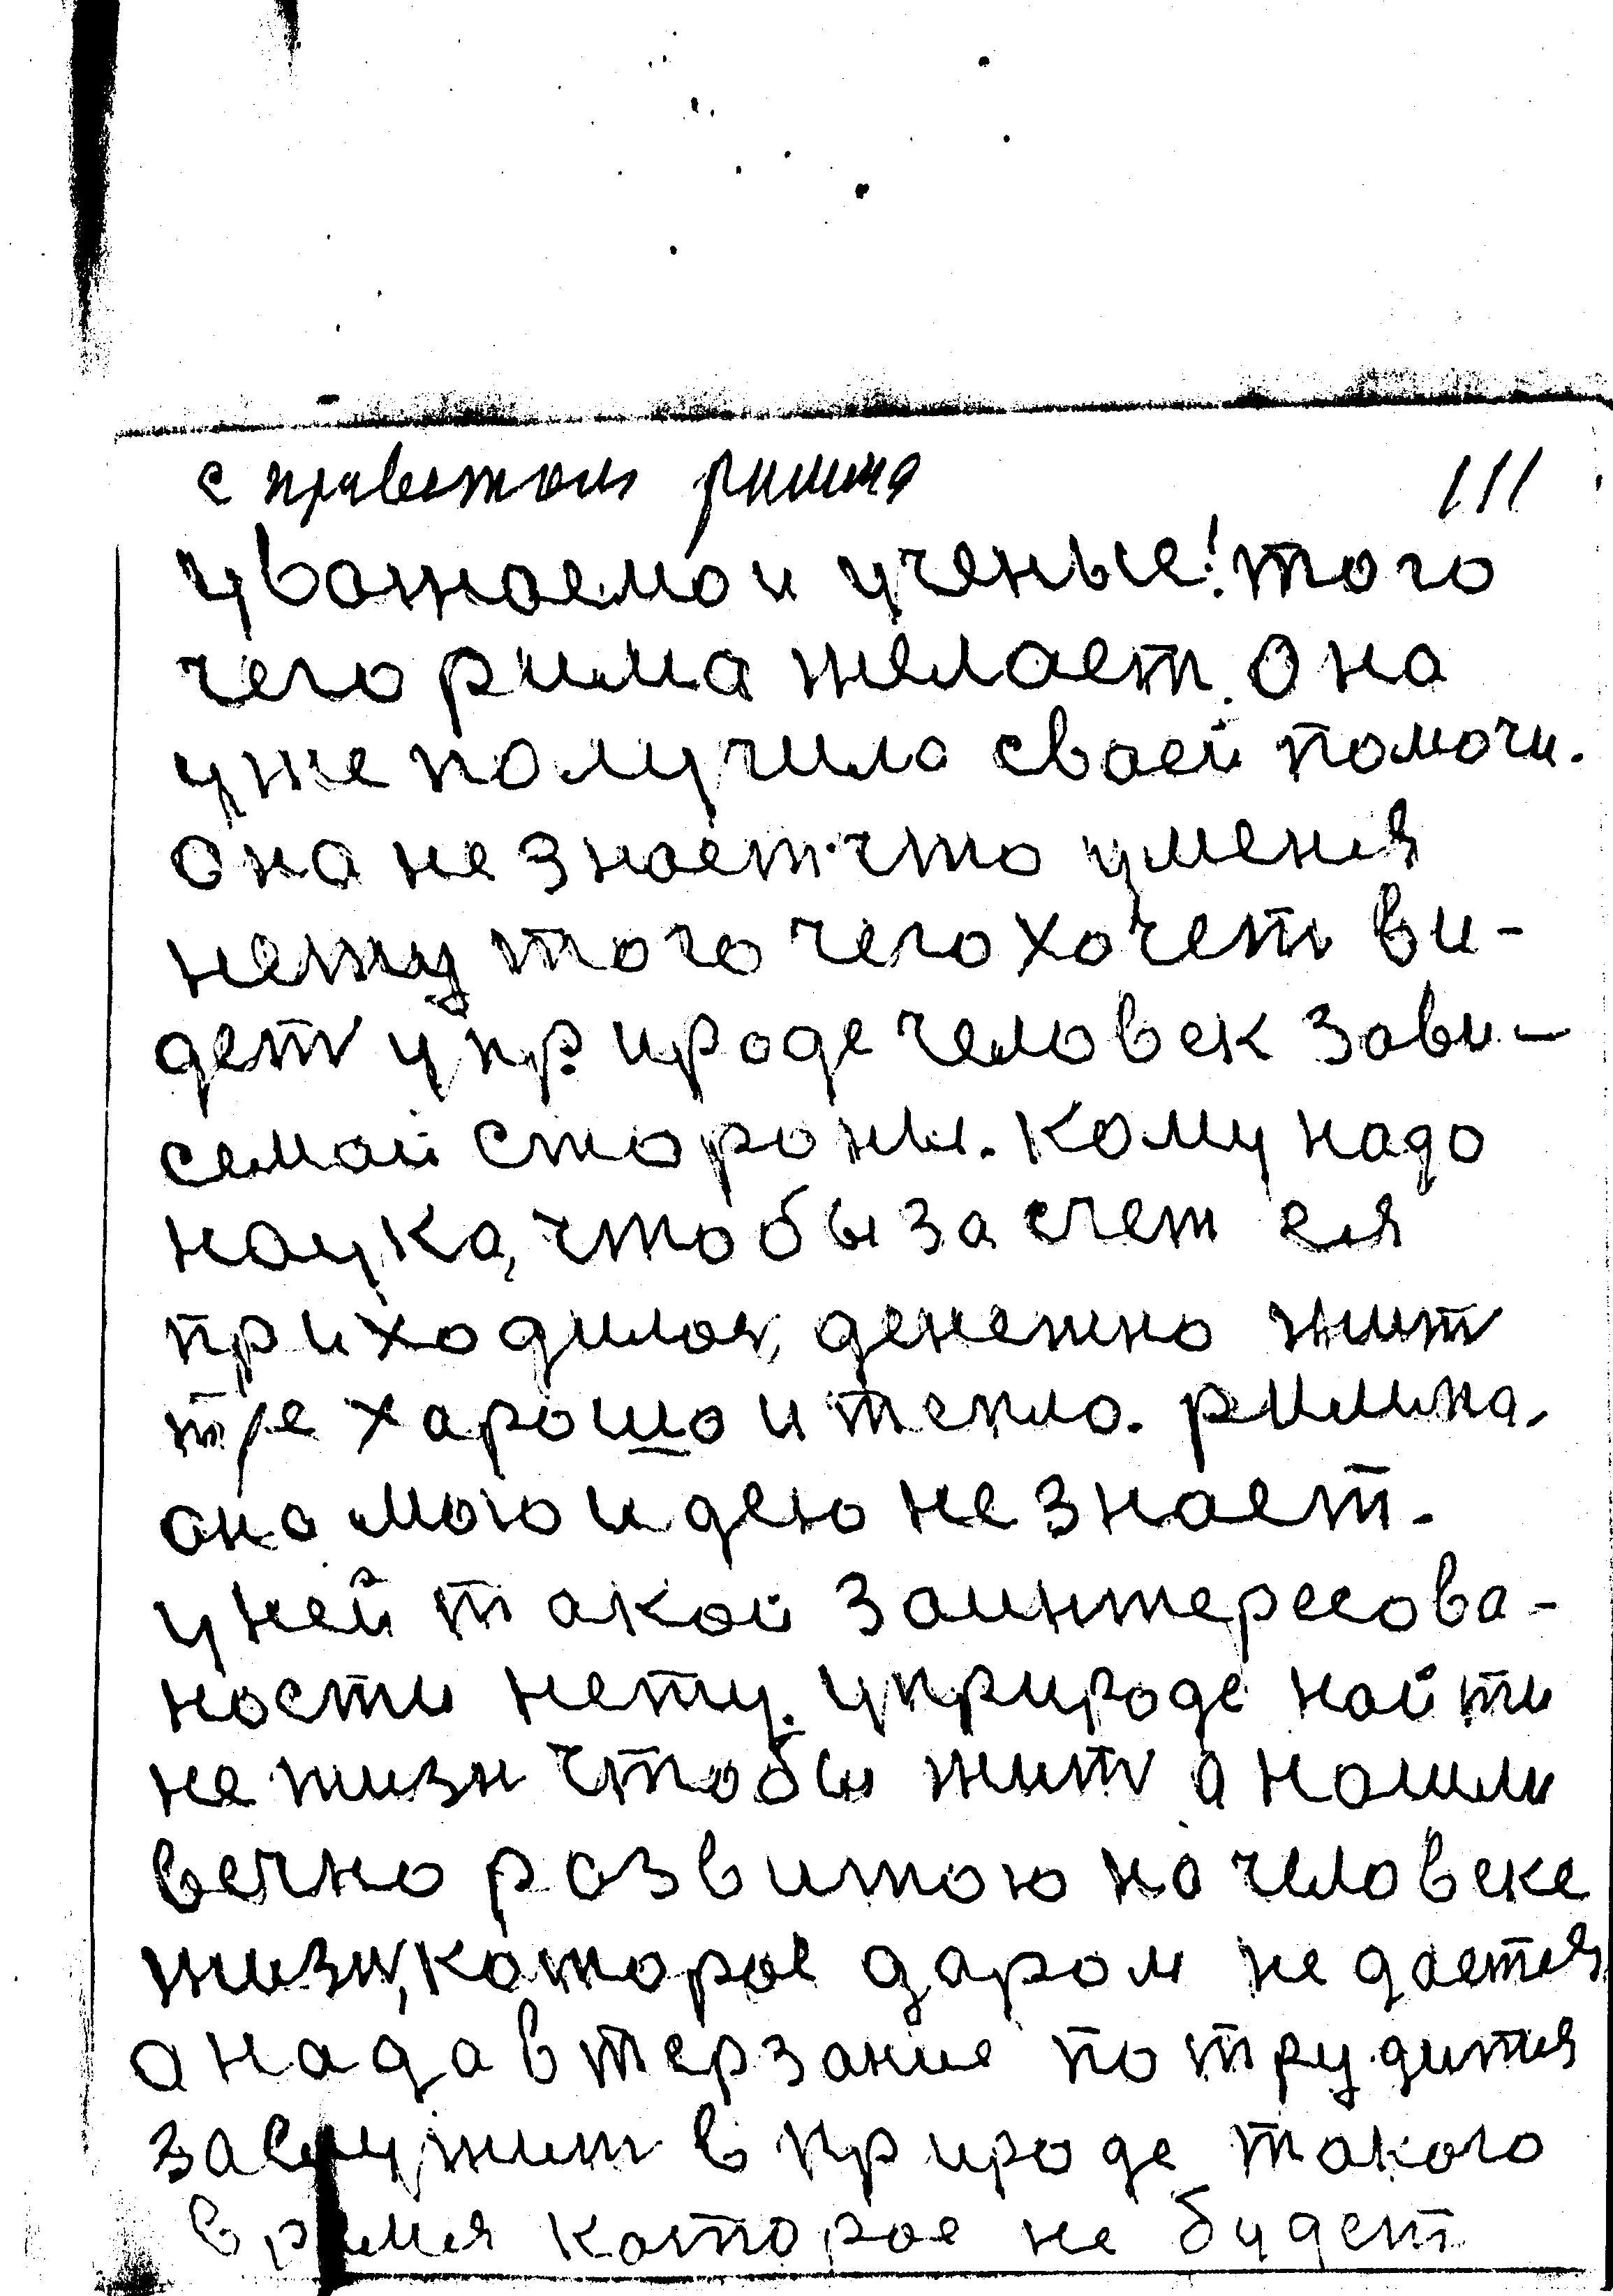 с приветом римма 111
уважаемои ученые! того
чего рима желает. Она
уже получила сваей помочи.
она не знает что уменя
нету того чего хочет ви-
дет у природе человек зави-
семай стороны. Кому надо
наука, чтобы за счет ея
приходилос, денежно жит
тже харошо и тепло. римма.
она мою идею не знает.
у ней такой заинтересова-
ности нету. уприроде найти
не жизн чтобы жит а нашли
вечно развитою на человеке
жизн, которое даром не дается
а нада в терзание потрудится
заслужит в природе такого
время каторое не будет